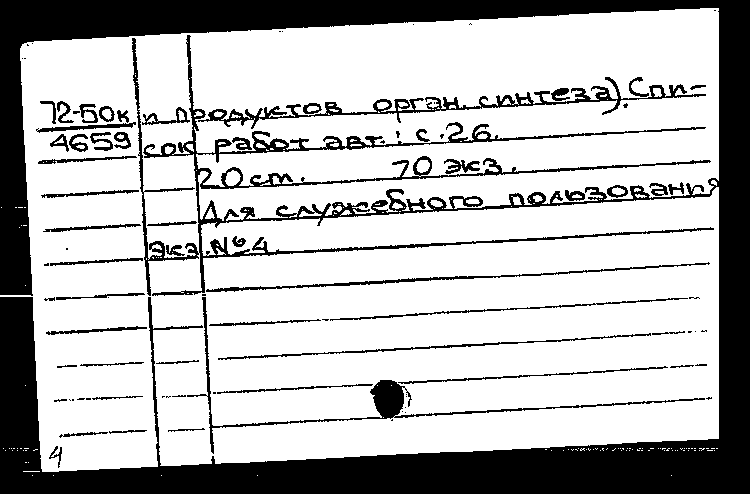 72-50к и продуктов орган. синтеза). Спи-
4659 сок работ авт.: с.26.
20 см. 70 экз.
Для служебного пользования
экз. №4.
4